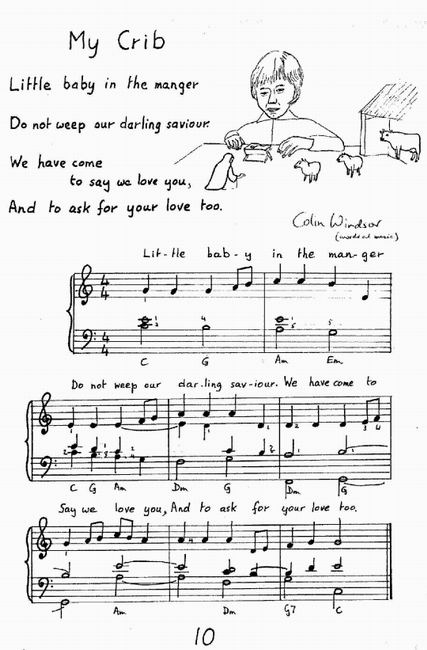 My Crib
Little baby in the manger
Do not weep our darling saviour.
We have come
to say we love you,
And to ask for your love too.
Colin Windsor
(words & music)
Lit-tle bab-y in the man-ger
4 4
1 4 5
C G Am Em
Do not weep our dar-ling sav-iour. We have come to
C G Am Dm G Dm G
Say we love you, And to ask for your love too.
Am Dm G7 C
10